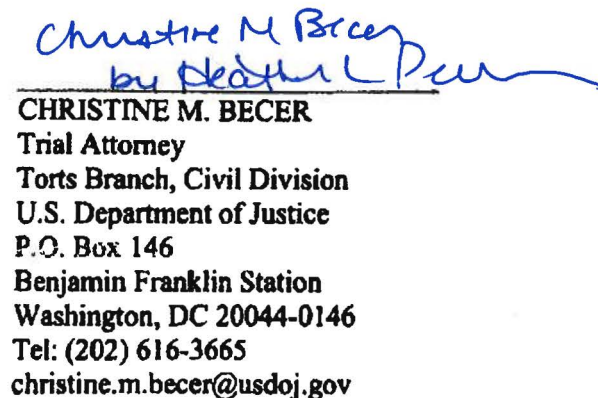 Christine M Becer
by Heather L
CHRISTINE M. BECER
Trial Attorney
Torts Branch, Civil Division
U.S. Department of Justice
P.O. Box 146
Benjamin Franklin Station
Washington, DC 20044-0146
Tel: (202) 616-3665
christine.m.becer@usdoj.gov